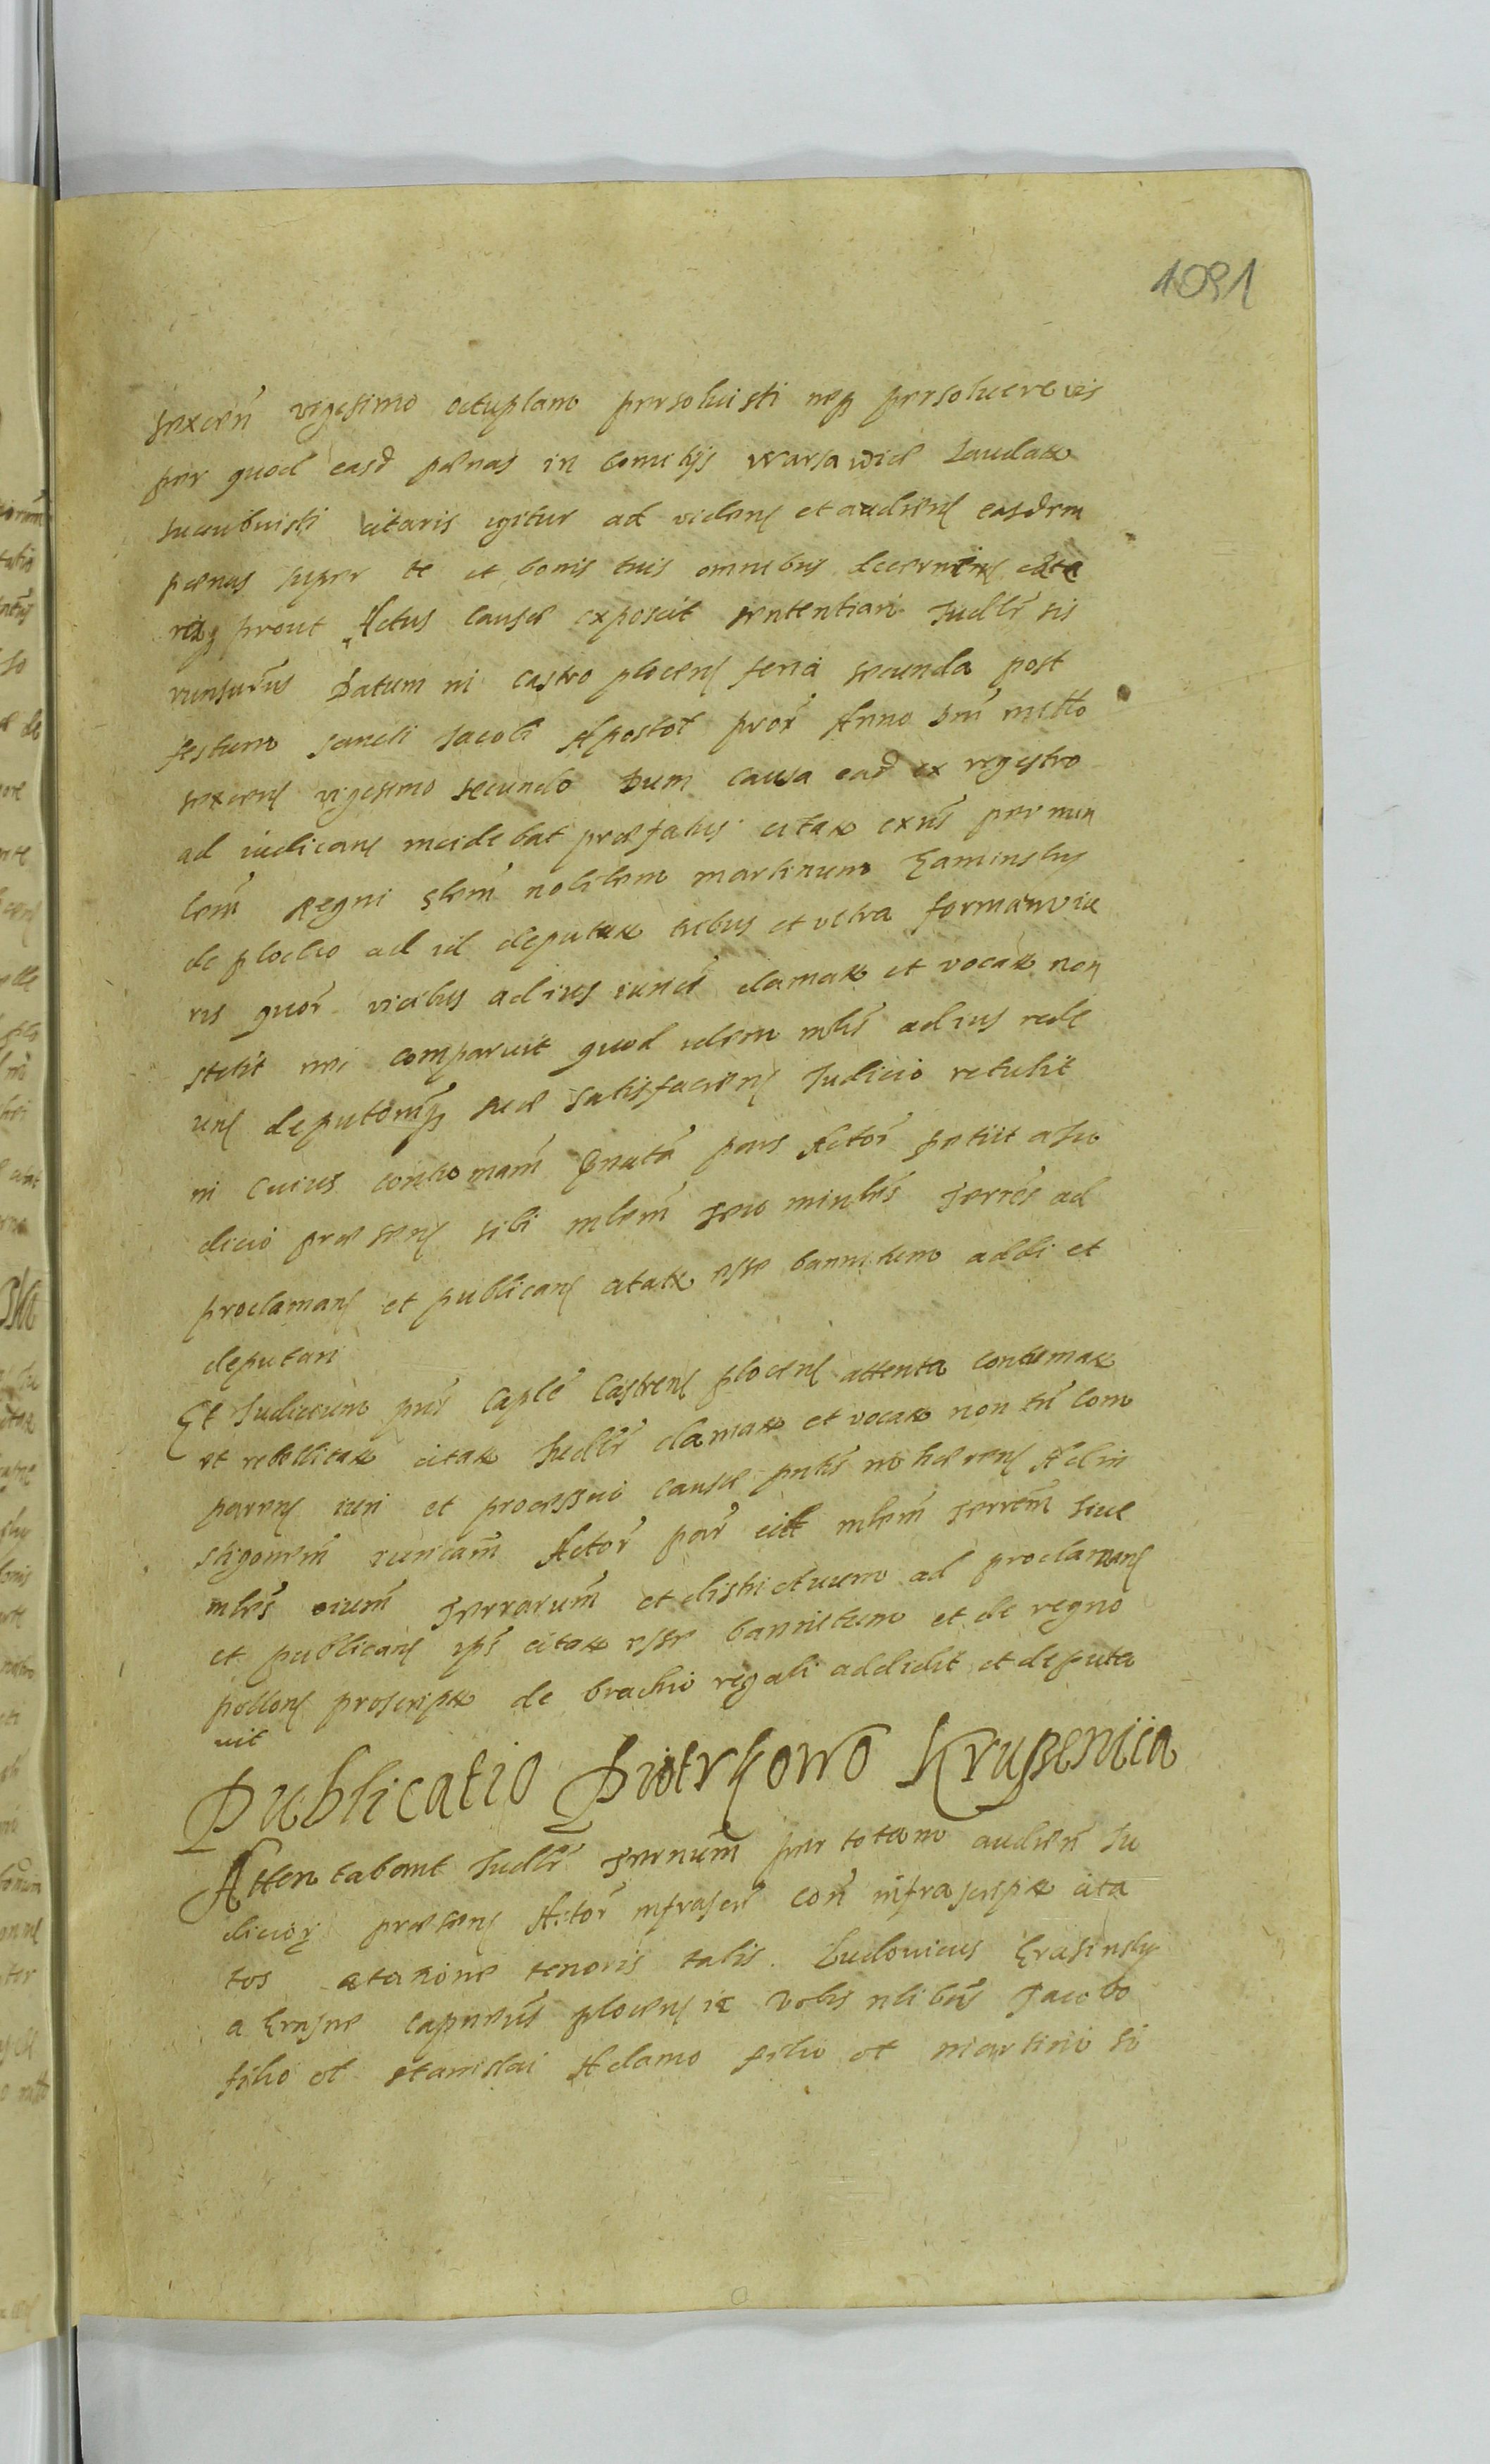 1091
sexcen̄ vigesimo octuplam persoluisti neq3 persoluere vis
per quod easd pœnas in comitijs Warsawiæ Laudatas
sucubuisti citaris igitur ad videnḍ et audienḍ easdem
pœnas super te et bonis tuis omnibus decernenḍ cæte
raq3 prout Actus causæ exposcit sententiari Judłr sis
runsurus Datum in Castro plocenḍ feria secunda post
festum Sancti Jacobi Apostoł prox̄ Anno Dn̄i millo
sexcenḍ vigesimo secundo Dum causa ead ex registro
ad iudicanḍ incidebat præfatus citat exn̄s per min
lem̄ Regni glem̄ nobilem martinum Kaminsky
de plocko ad id deputat tribus et vltra forman via
ris quor̄ vicibus ad ius iund̄ clamat et vocat non
stetit nec comparuit quod idem młs̄ ad ius rede
unḍ deputōniq3 suæ satisfacienḍ Judicio retulit
in cuius contumam̄ pars Actor̄ petiit a Ju
dicio præsenḍ sibi młem̄ seu minłrs̄ Terrēs ad
proclamanḍ et publicanḍ citat esse bannitum addi et
deputari
Et Judicium pn̄s Caplē Castrenḍ plocenḍ attenta contumat
et rebellitat citat Judłr̄ clamat et vocat non tn̄ com
parenḍ iuri et processui causæ pn̄tis no hærenḍ Ad in
stigonem̄ iuridam̄ Actor̄ par̄ eidē młem̄ terrem̄ siue
młes̄ oium̄ Terrarum̄ et districtuum ad proclamanḍ
et publicanḍ ips̄ citat esse bannitum et de regno
pollonḍ proscript de brachio regali addidit et deputa
uit
Publicatio Piotrkowo Krupenija
Attentabant Judłr̄ Termin̄um per totam audien̄ Ju
diciorꝫ præsenḍ Actor̄ infrascr̄ con̄ infrascript cita
tos citatione tenoris talis. Ludovicus Krasinsky
a Krasne Capneus̄ plocenḍ vobis nlibus̄ Jacobo
filio ol Stanislai Adamo filio ol martini Si